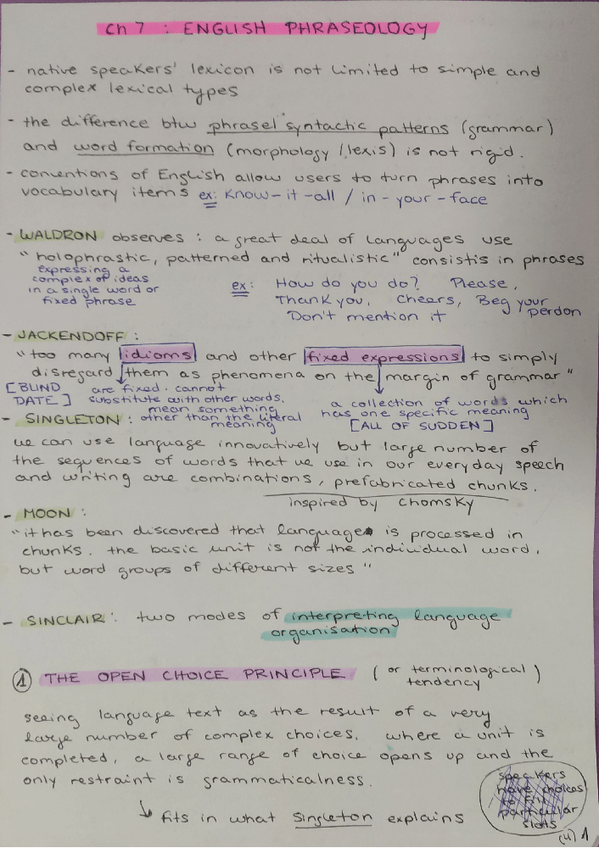 Ch 7 : ENGLISH PHRASEOLOGY
- native speakers' lexicon is not limited to simple and
complex lexical types
- the difference btw phrasel syntactic patterns (grammar)
and word formation (morphology / lexis) is not rigid.
- conventions of English allow users to turn phrases into
vocabulary items ex: Know-it-all / in-your-face
- WALDRON observes : a great deal of languages use
"holophrastic, patterned and ritualistic" consistis in phrases
expressing a
complex of ideas
in a single word or
fixed phrase
ex: How do you do? Please,
Thank you, Cheers, Beg your perdon
Don't mention it
- JACKENDOFF :
"too many idioms and other fixed expressions to simply
disregard them as phenomena on the margin of grammar"
[BLIND DATE] are fixed. cannot
substitute with other words,
mean something
other than the literal
meaning
a collection of words which
has one specific meaning
[ALL OF SUDDEN]
- SINGLETON :
we can use language innovatively but large number of
the sequences of words that we use in our everyday speech
and writing are combinations, prefabricated chunks.
inspired by Chomsky
- MOON :
"it has been discovered that language is processed in
chunks. the basic unit is not the individual word,
but word groups of different sizes"
- SINCLAIR : two modes of interpreting language
organisation
1 THE OPEN CHOICE PRINCIPLE (or terminological
tendency)
seeing language text as the result of a very
large number of complex choices. where a unit is
completed, a large range of choice opens up and the
only restraint is grammaticalness.
↳ fits in what Singleton explains
speakers
have choices
to fill
particular
slots
(4) 1